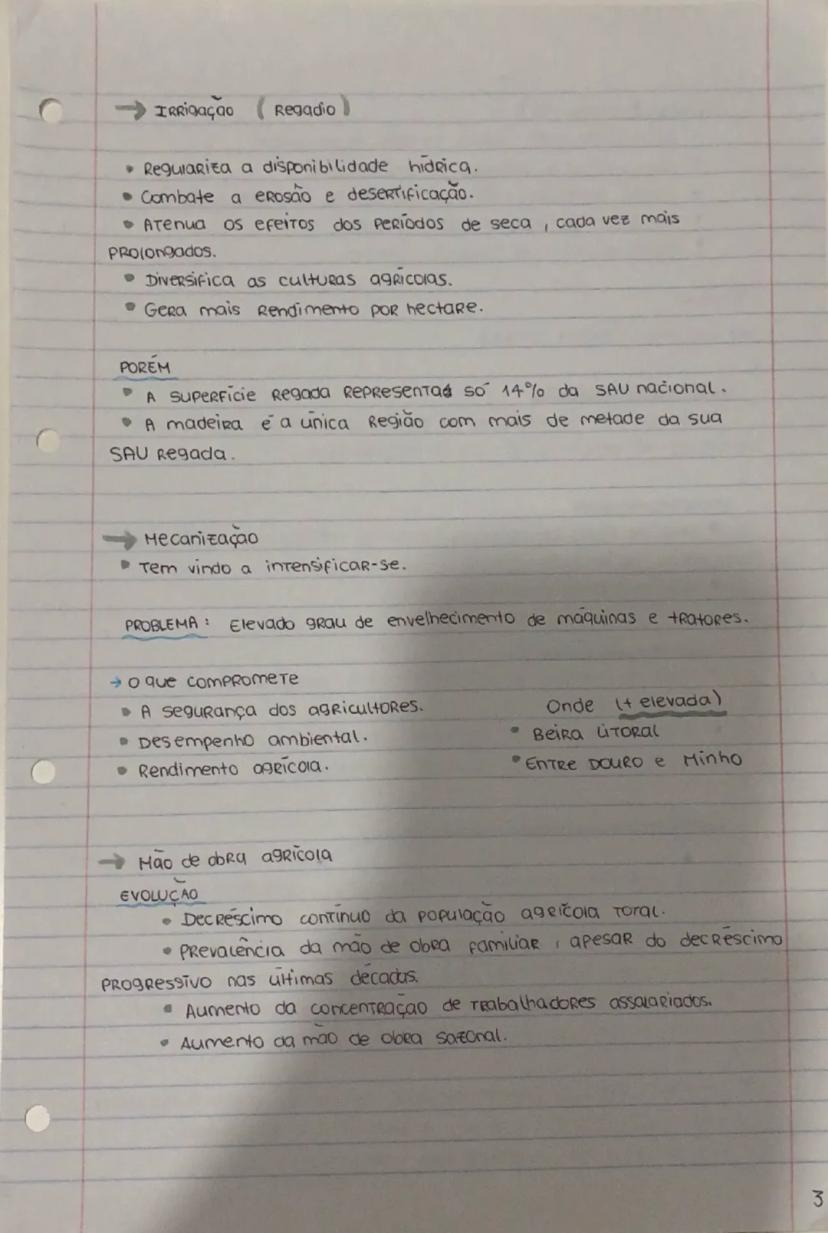 → Irrigação (Regadio)
• Regulariza a disponibilidade hídrica.
• Combate a erosão e desertificação.
• Atenua os efeitos dos períodos de seca, cada vez mais
prolongados.
• Diversifica as culturas agrícolas.
• Gera mais rendimento por hectare.
PORÉM
• A superfície regada representa só 14% da SAU nacional.
• A madeira é a única região com mais de metade da sua
SAU regada.
→ Mecanização
• Tem vindo a intensificar-se.
PROBLEMA: Elevado grau de envelhecimento de máquinas e tratores.
→ O que compromete
• A segurança dos agricultores.
• Desempenho ambiental.
• Rendimento agrícola.
Onde (+ elevada)
• Beira Litoral
• Entre Douro e Minho
→ Mão de obra agrícola
EVOLUÇÃO
• Decréscimo contínuo da população agrícola total.
• Prevalência da mão de obra familiar, apesar do decréscimo
progressivo nas últimas décadas.
• Aumento da concentração de trabalhadores assalariados.
• Aumento da mão de obra sazonal.
3